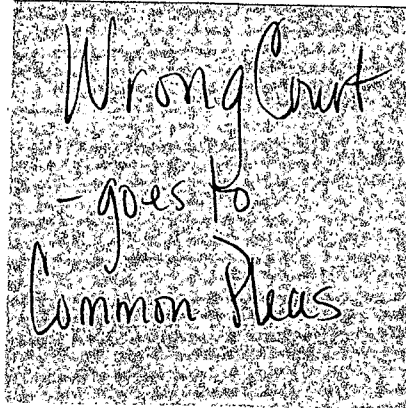 Wrong Court
- goes to
Common Pleas